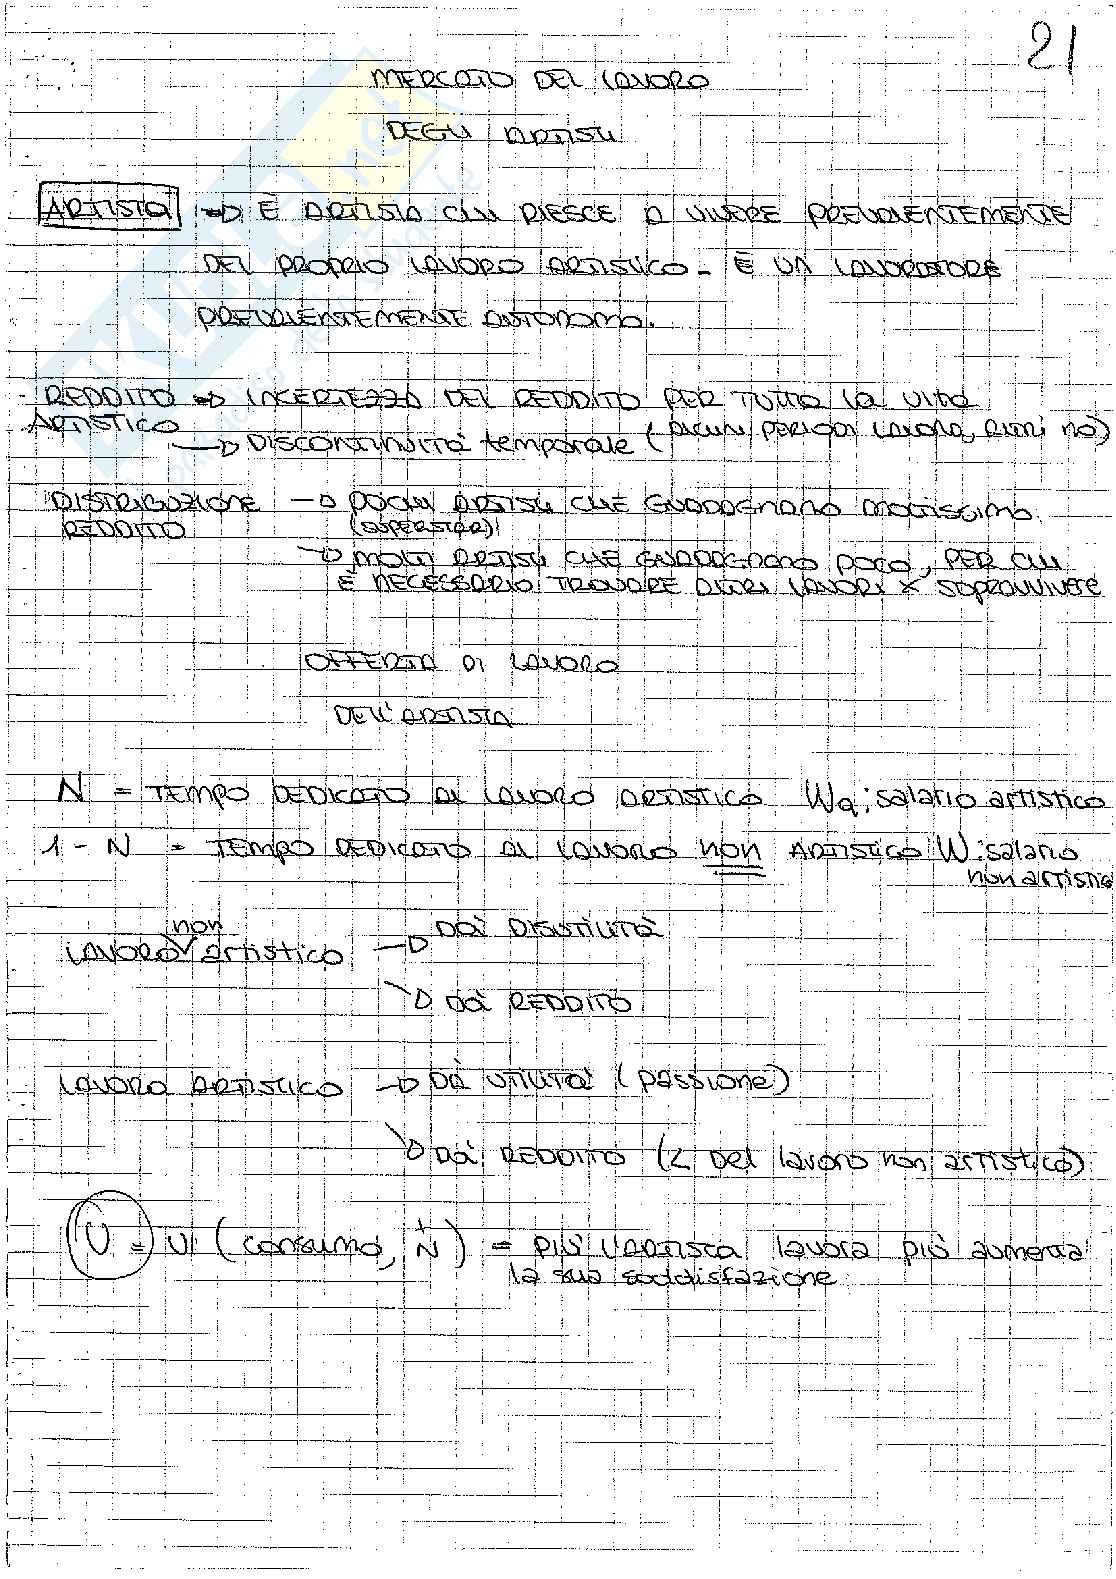 21
MERCATO DEL LAVORO
DEGLI ARTISTI
ARTISTA → È ARTISTA CHI RIESCE A VIVERE PREVALENTEMENTE
DEL PROPRIO LAVORO ARTISTICO. È UN LAVORATORE
PREVALENTEMENTE AUTONOMO.
REDDITO → INCERTEZZA DEL REDDITO PER TUTTA LA VITA
ARTISTICO
→ DISCONTINUITÀ temporale (ALCUNI PERIODI LAVORA, ALTRI NO)
DISTRIBUZIONE → POCHI ARTISTI CHE GUADAGNANO MOLTISSIMO
REDDITO (SUPERSTAR)
→ MOLTI ARTISTI CHE GUADAGNANO POCO, PER CUI
È NECESSARIO TROVARE ALTRI LAVORI x SOPRAVVIVERE
OFFERTA DI LAVORO
DELL'ARTISTA
N = TEMPO DEDICATO AL LAVORO ARTISTICO Wa: salario artistico
1 - N = TEMPO DEDICATO AL LAVORO non ARTISTICO W: salario
non artistico
non
LAVORO artistico → DÀ DISUTILITÀ
→ DÀ REDDITO
LAVORO ARTISTICO → DÀ UTILITÀ (passione)
→ DÀ REDDITO (< DEL lavoro non artistico)
U = U (consumo, N+) = PIÙ L'ARTISTA lavora più aumenta
la sua soddisfazione